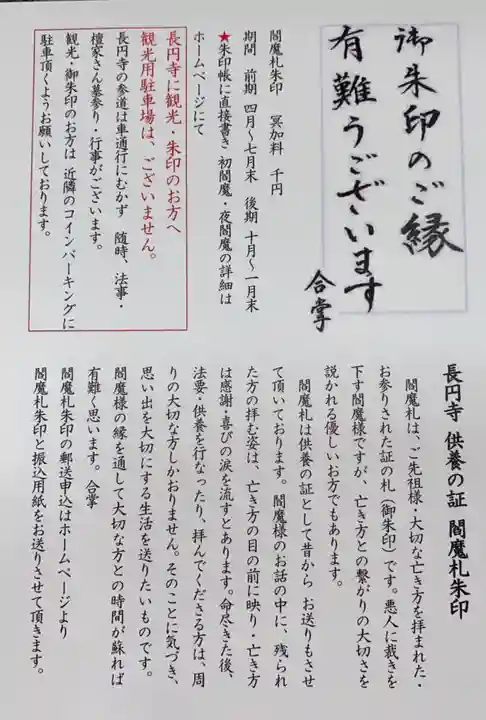 御朱印のご縁
有難うございます
合掌
閻魔札朱印　冥加料　千円
期間　前期　四月～七月末　後期　十月～一月末
★朱印帳に直接書き　初閻魔・夜閻魔の詳細は
ホームページにて
長円寺に観光・朱印のお方へ
観光用駐車場は、ございません。
長円寺の参道は車通行にむかず　随時、法事・
檀家さん墓参り・行事がございます。
観光・御朱印のお方は　近隣のコインパーキングに
駐車頂くようお願いしております。
長円寺 供養の証 閻魔札朱印
閻魔札は、ご先祖様・大切な亡き方を拝まれた・
お参りされた証の札（御朱印）です。悪人に裁きを
下す閻魔様ですが、亡き方との繋がりの大切さを
説かれる優しいお方でもあります。
閻魔札は供養の証として昔から お送りもさせ
て頂いております。閻魔様のお話の中に、残られ
た方の拝む姿は、亡き方の目の前に映り・亡き方
は感謝・喜びの涙を流すとあります。命尽きた後、
法要・供養を行なったり、拝んでくださる方は、周
りの大切な方しかおりません。そのことに気づき、
思い出を大切にする生活を送りたいものです。
閻魔様の縁を通して大切な方との時間が蘇れば
有難く思います。合掌
閻魔札朱印の郵送申込はホームページより
閻魔札朱印と振込用紙をお送りさせて頂きます。